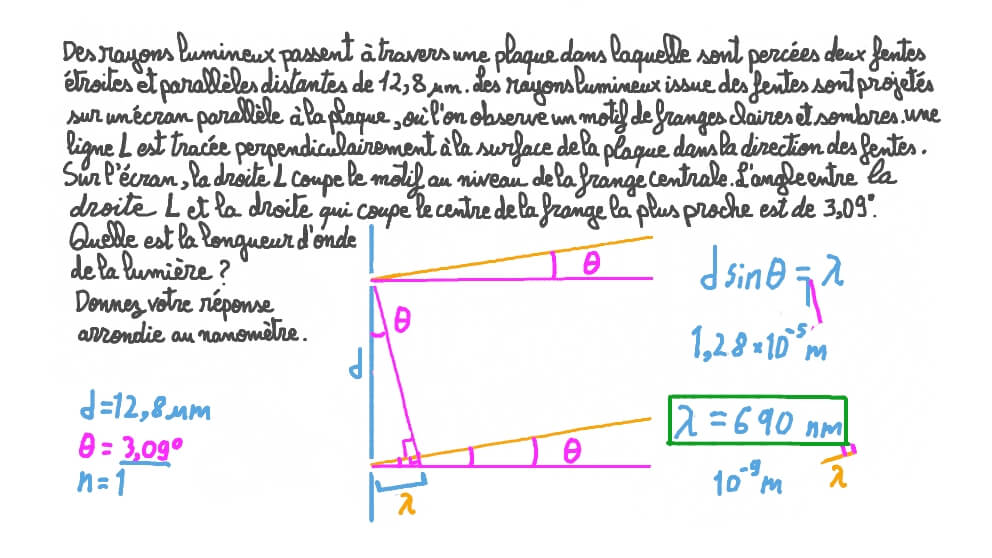 Des rayons lumineux passent à travers une plaque dans laquelle sont percées deux fentes
étroites et parallèles distantes de 12,8 µm. Les rayons lumineux issue des fentes sont projetés
sur un écran parallèle à la plaque, où l'on observe un motif de franges claires et sombres. une
ligne L est tracée perpendiculairement à la surface de la plaque dans la direction des fentes.
Sur l'écran, la droite L coupe le motif au niveau de la frange centrale. L'angle entre la
droite L et la droite qui coupe le centre de la frange la plus proche est de 3,09°.
Quelle est la longueur d'onde
de la lumière ?
Donnez votre réponse
arrondie au nanomètre.
d=12,8 µm
θ = 3,09°
n=1
θ
θ
d
θ
λ
d sin θ = λ
1,28×10⁻⁵ m
λ = 690 nm
10⁻⁹ m
λ